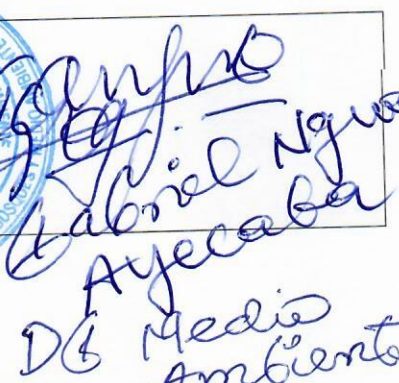 Gabriel Ngua
Ayecaba
DG Medio
Ambiente